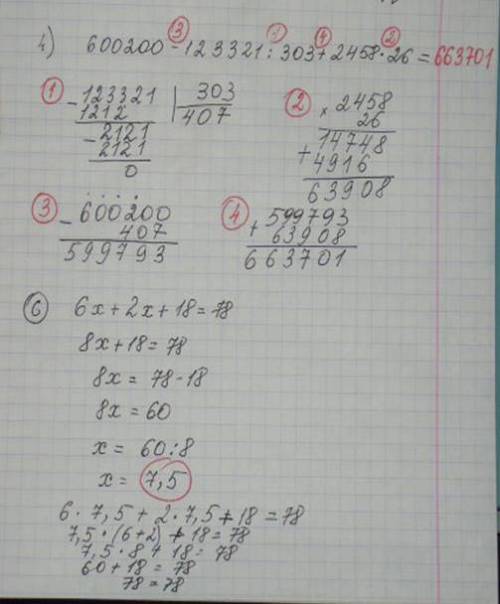 4) 600200 - 123321 : 303 + 2458 · 26 = 663701
3 1 4 2
1 - 123321 | 303
1212 407
- 2121
2121
0
2 × 2458
26
+ 14748
4916
63908
3 - 600200
407
599793
4 + 599793
63908
663701
6 6x + 2x + 18 = 78
8x + 18 = 78
8x = 78 - 18
8x = 60
x = 60 : 8
x = 7,5
6 · 7,5 + 2 · 7,5 + 18 = 78
7,5 · (6+2) + 18 = 78
7,5 · 8 + 18 = 78
60 + 18 = 78
78 = 78